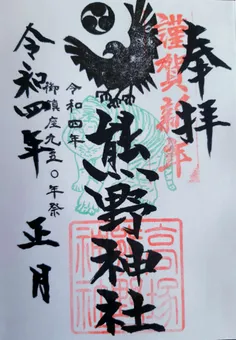 奉拝
謹賀新年
熊野神社
令和四年
御鎮座九五〇年祭
令和四年 正月
高塚
熊野
神社